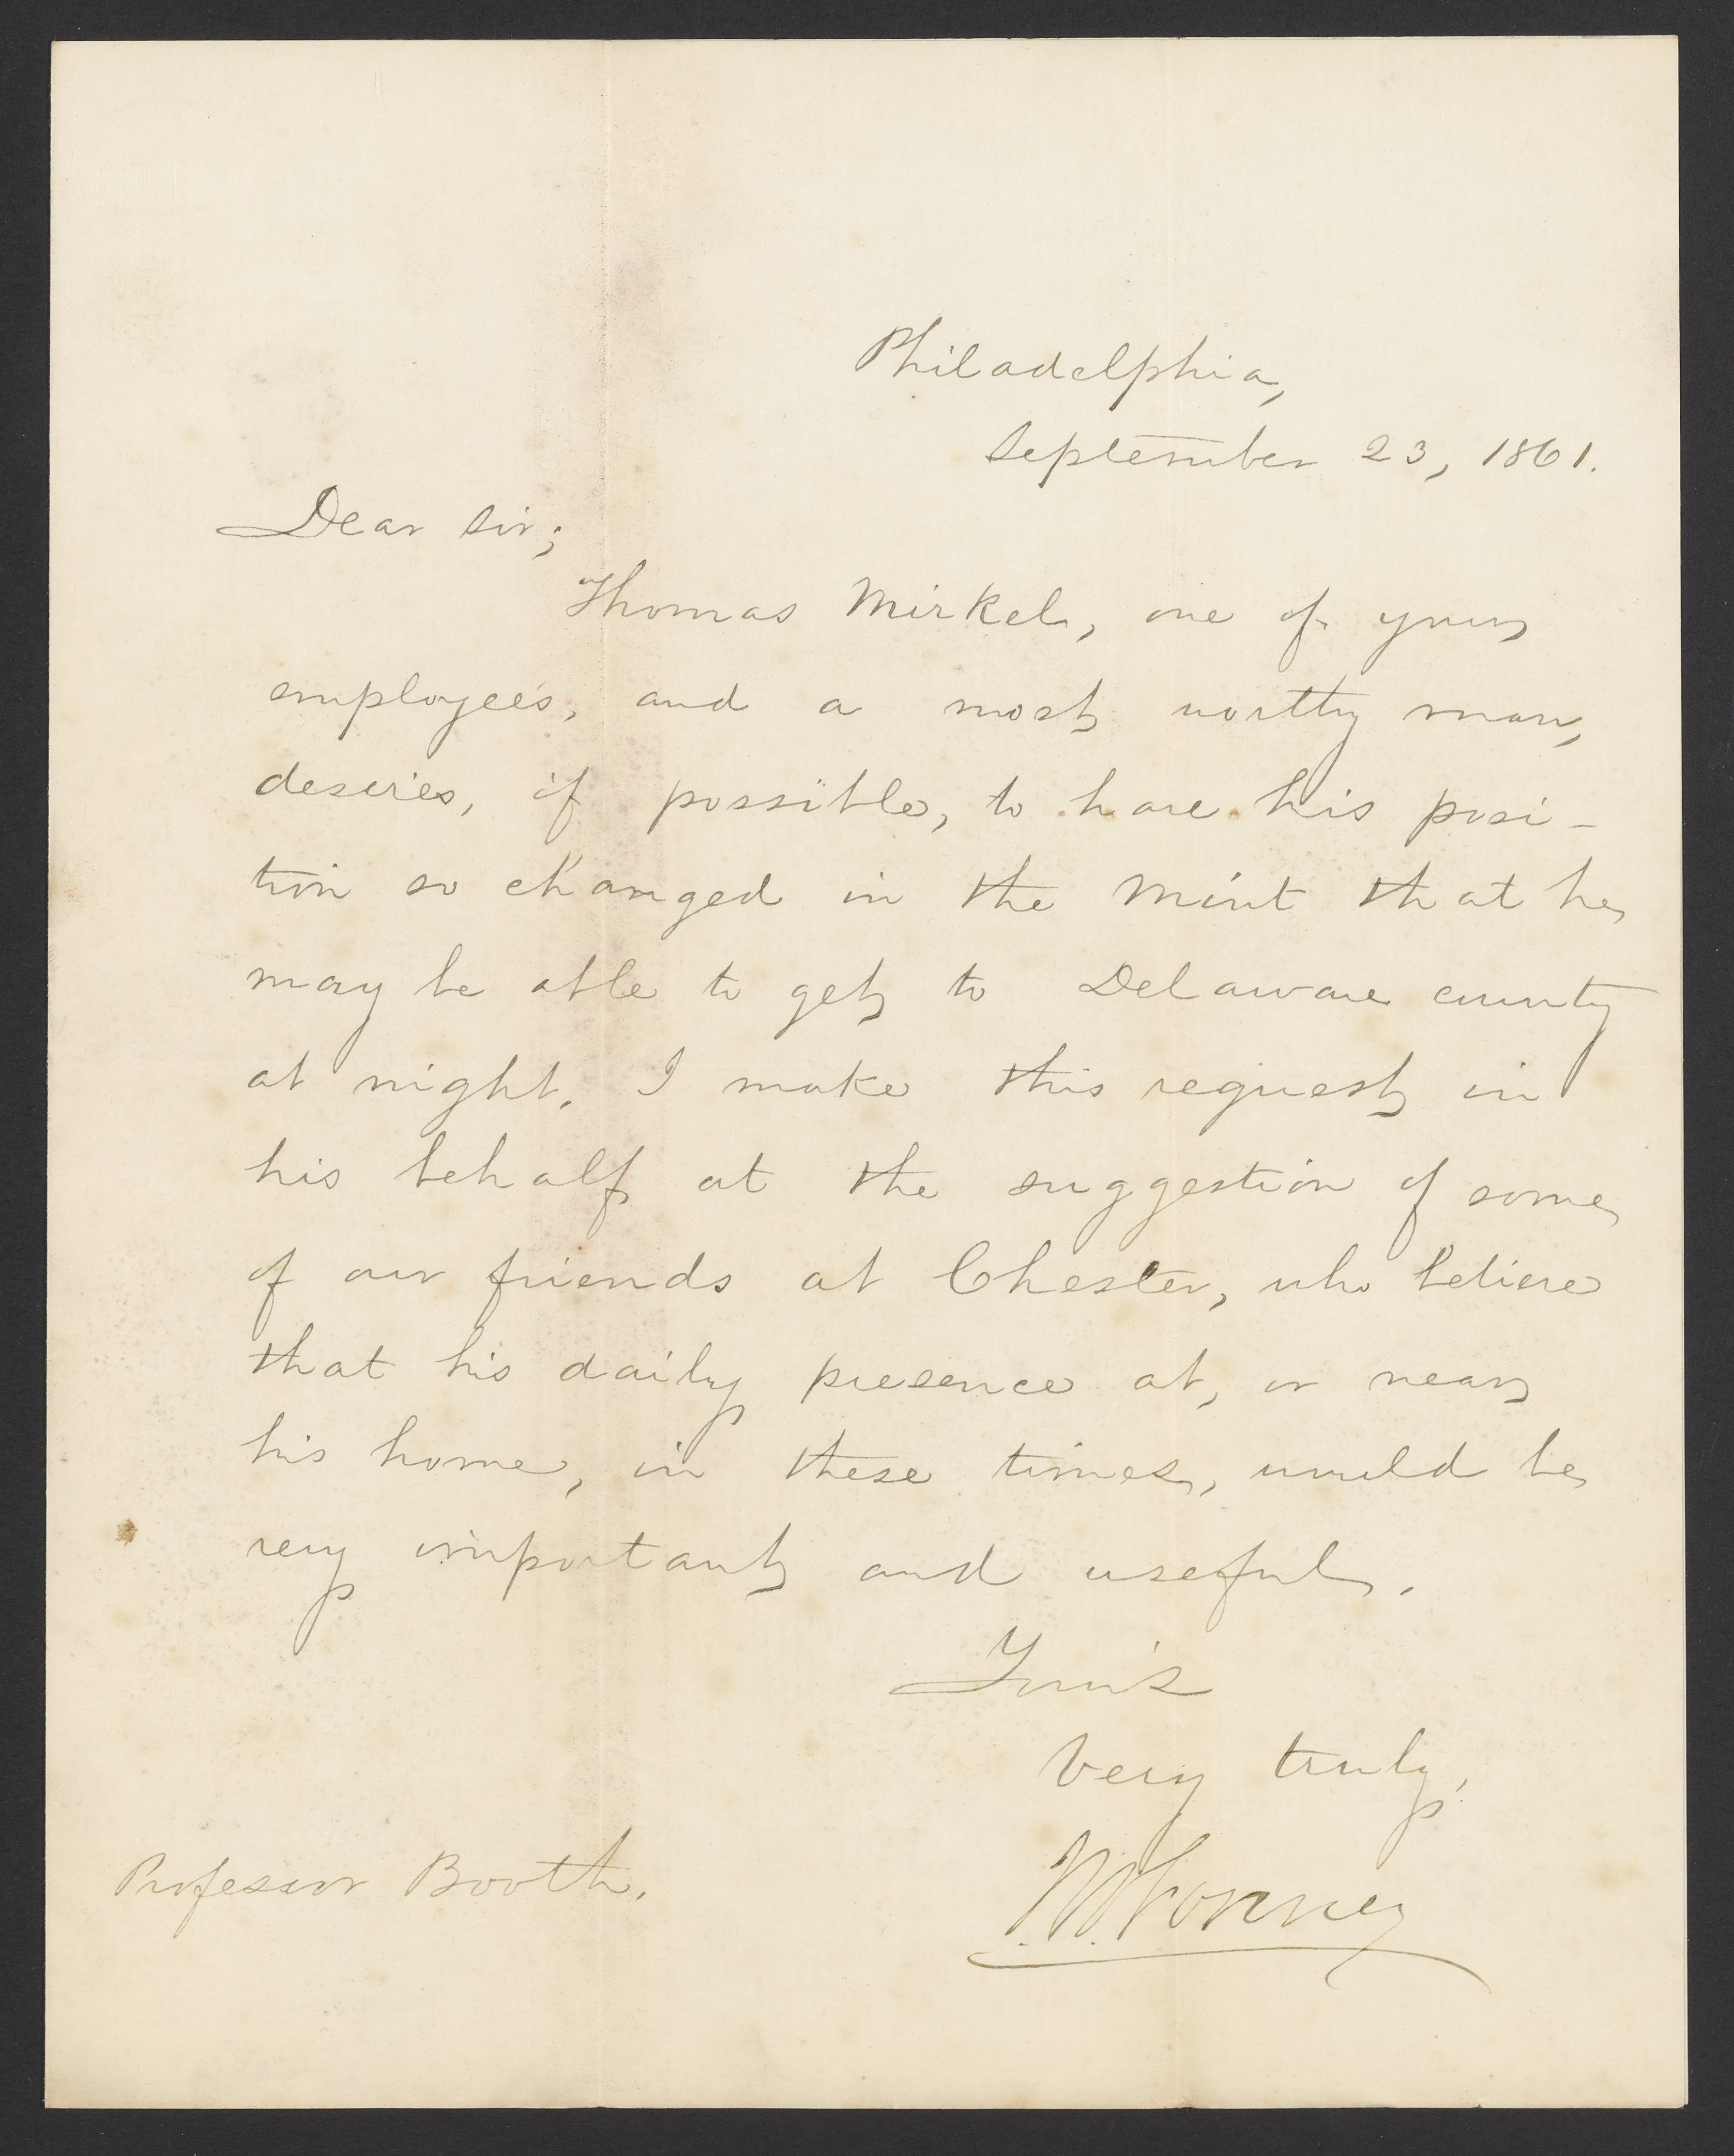 Philadelphia,
September 23, 1861.
Dear Sir;
Thomas Mirkel, one of your
employees, and a most worthy man,
desires, if possible, to have his posi-
tion so changed in the Mint that he
may be able to get to Delaware county
at night. I make this request in
his behalf at the suggestion of some
of our friends at Chester, who believe
that his daily presence at, or near
his home, in these times, would be
very important and useful.
Yours
Very truly,
Forney
Professor Booth.